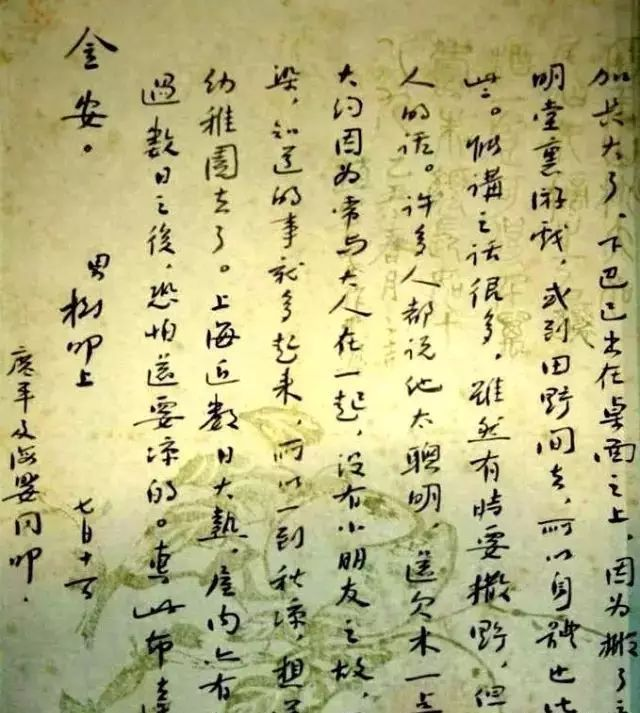 加甚大了，下巴已出在桌面之上，因为搬了
明堂里游戏，或到田野间去，所以身体也比
些。能讲之话很多，虽然有时要撒野，但
人的话。许多人都说他太聪明，还欠木一点
大约因为常与大人在一起，没有小朋友之故，
染，知道的事就多起来，所以一到秋凉，想送
幼稚園去了。上海近数日大熱，屋内亦有
過数日之後，恐怕還要凉的。專此布達
金安。
男 樹叩上 七月十二日
廣平及海嬰同叩．